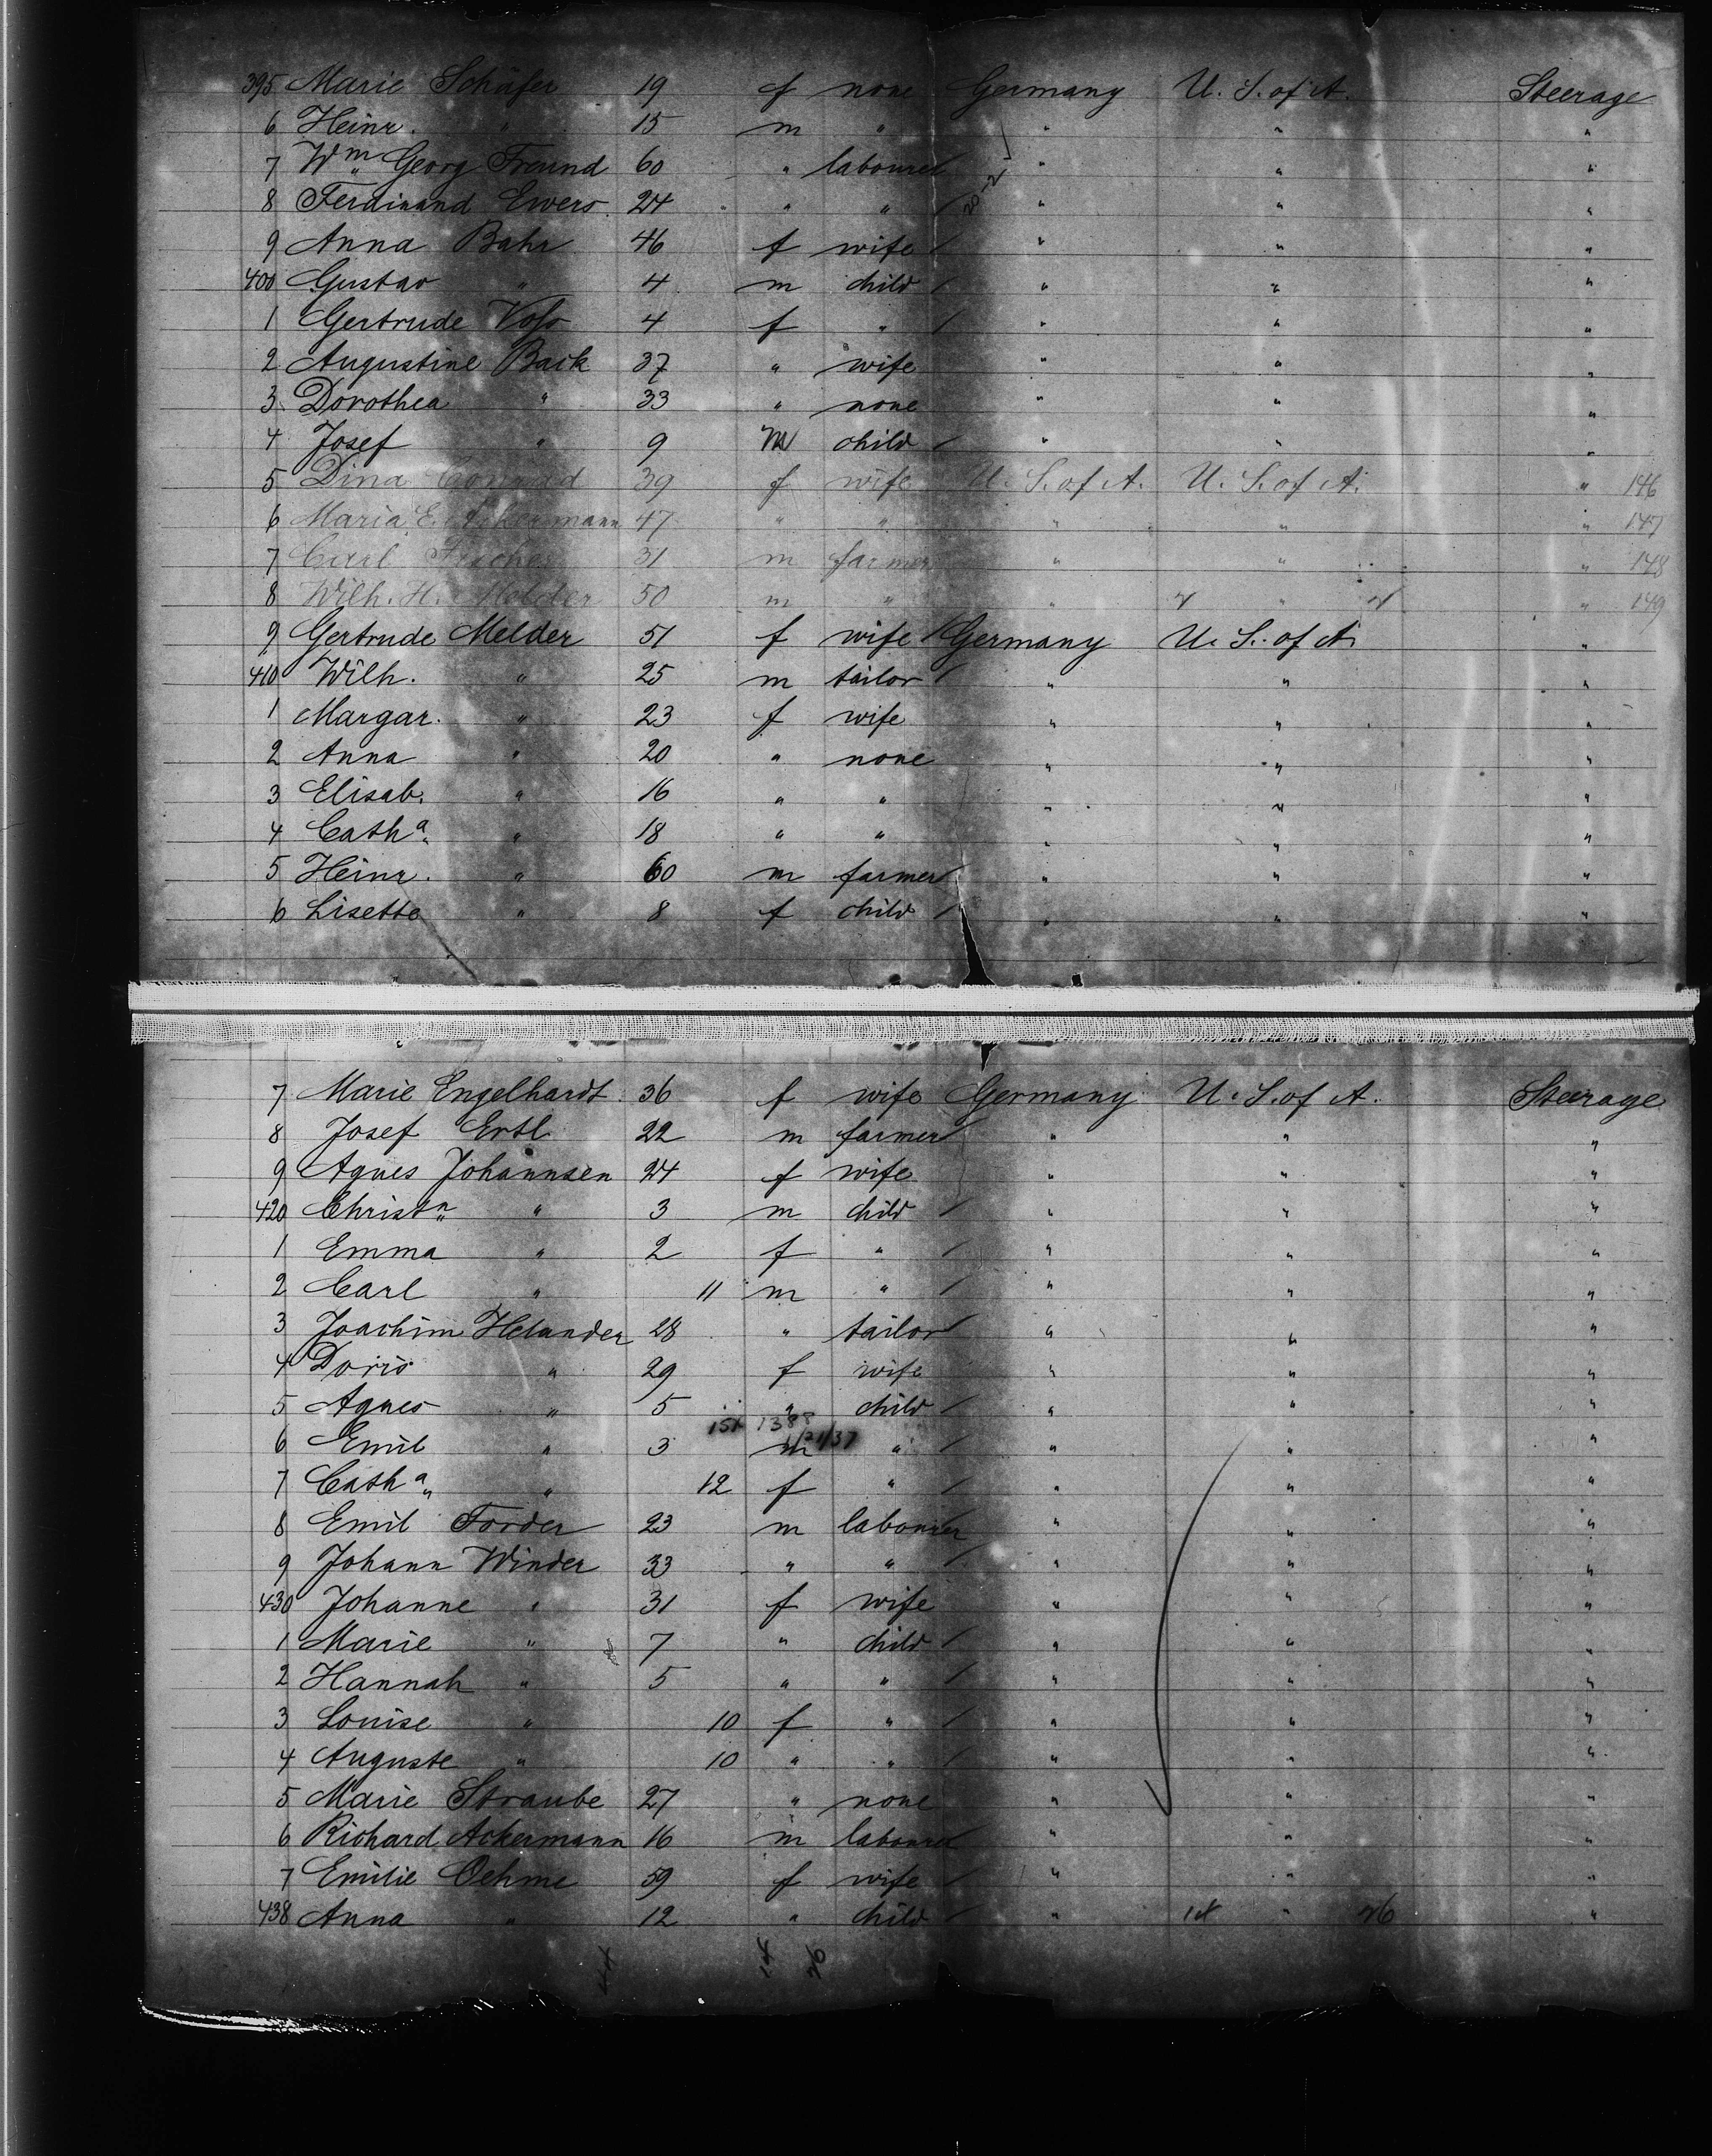 395 Marie Schäfer 19 f none Germany U. S. of A. Steerage
6 Heinr. " 15 m " " " "
7 Wm Georg Freund 60 " labourer " " "
8 Ferdinand Ewers 24 " " " " "
9 Anna Bahr 46 f wife " " "
400 Gustav " 4 m child " " "
1 Gertrude Voss 4 f " " " "
2 Augustine Back 37 " wife " " "
3 Dorothea " 33 " none " " "
4 Josef " 9 m child " " "
5 Dina Conrad 39 f wife U. S. of A. U. S. of A. " 146
6 Maria E. Ackermann 47 " " " " " 147
7 Carl Fischer 31 m farmer " " " 148
8 Wilh. H. Melder 50 m " " " " 149
9 Gertrude Melder 51 f wife Germany U. S. of A. "
410 Wilh. " 25 m tailor " " "
1 Margar. " 23 f wife " " "
2 Anna " 20 " none " " "
3 Elisab. " 16 " " " " "
4 Catha " 18 " " " " "
5 Heinr. " 60 m farmer " " "
6 Lisette " 8 f child " " "
7 Marie Engelhardt 36 f wife Germany U. S. of A. Steerage
8 Josef Ertl 22 m farmer " " "
9 Agnes Johannsen 24 f wife " " "
420 Christn " 3 m child " " "
1 Emma " 2 f " " " "
2 Carl " 11 m " " " "
3 Joachim Helander 28 " tailor " " "
4 Doris " 29 f wife " " "
5 Agnes " 5 " child " " "
6 Emil " 3 m " " " "
7 Catha " 12 f " " " "
8 Emil Forder 23 m labourer " " "
9 Johann Winder 33 " " " " "
430 Johanne " 31 f wife " " "
1 Marie " 7 " child " " "
2 Hannah " 5 " " " " "
3 Louise " 10 f " " " "
4 Auguste " 10 " " " " "
5 Marie Straube 27 " none " " "
6 Richard Ackermann 16 m labourer " " "
7 Emilie Oehme 59 f wife " " "
438 Anna " 12 " child " " "